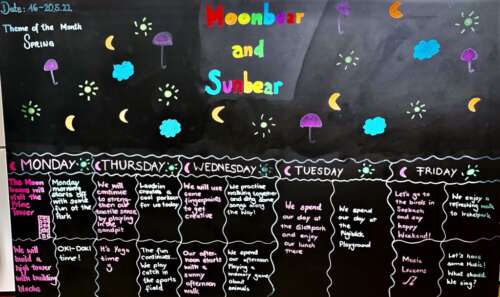 Date: 16-20.5.22
Theme of the Month
SPRING
Moonbear
and
Sunbear
MONDAY
THURSDAY
WEDNESDAY
TUESDAY
FRIDAY
The Moon
bears will
visit the
Tower
Monday
morning
starts off
with some
fun at the
Park
We will
continue
to streng-
then our
sense
by playing
in the
sandpit
creates a
cool parkour
for us today
We will use
some
fingerpaints
to get
creative
We practise
walking together
and sing some
songs along
the way!
We spend
our day
at the
and enjoy
our lunch
there
We spend
our day at
the
Playground
Let's go to
the birds in
and say
happy
Weekend!
We enjoy a
refreshing walk
to
We will
build a
high tower
with building
blocks
OKI-DOKI
time!
It's Yoga
time
The fun
continues...
We play
catch in
the sports
field
Our after-
noon starts
with a
sunny
afternoon
walk
We spend
our afternoon
playing a
memory game
about
animals
Music
Lessons
Let's have
some music!
What should
we sing?